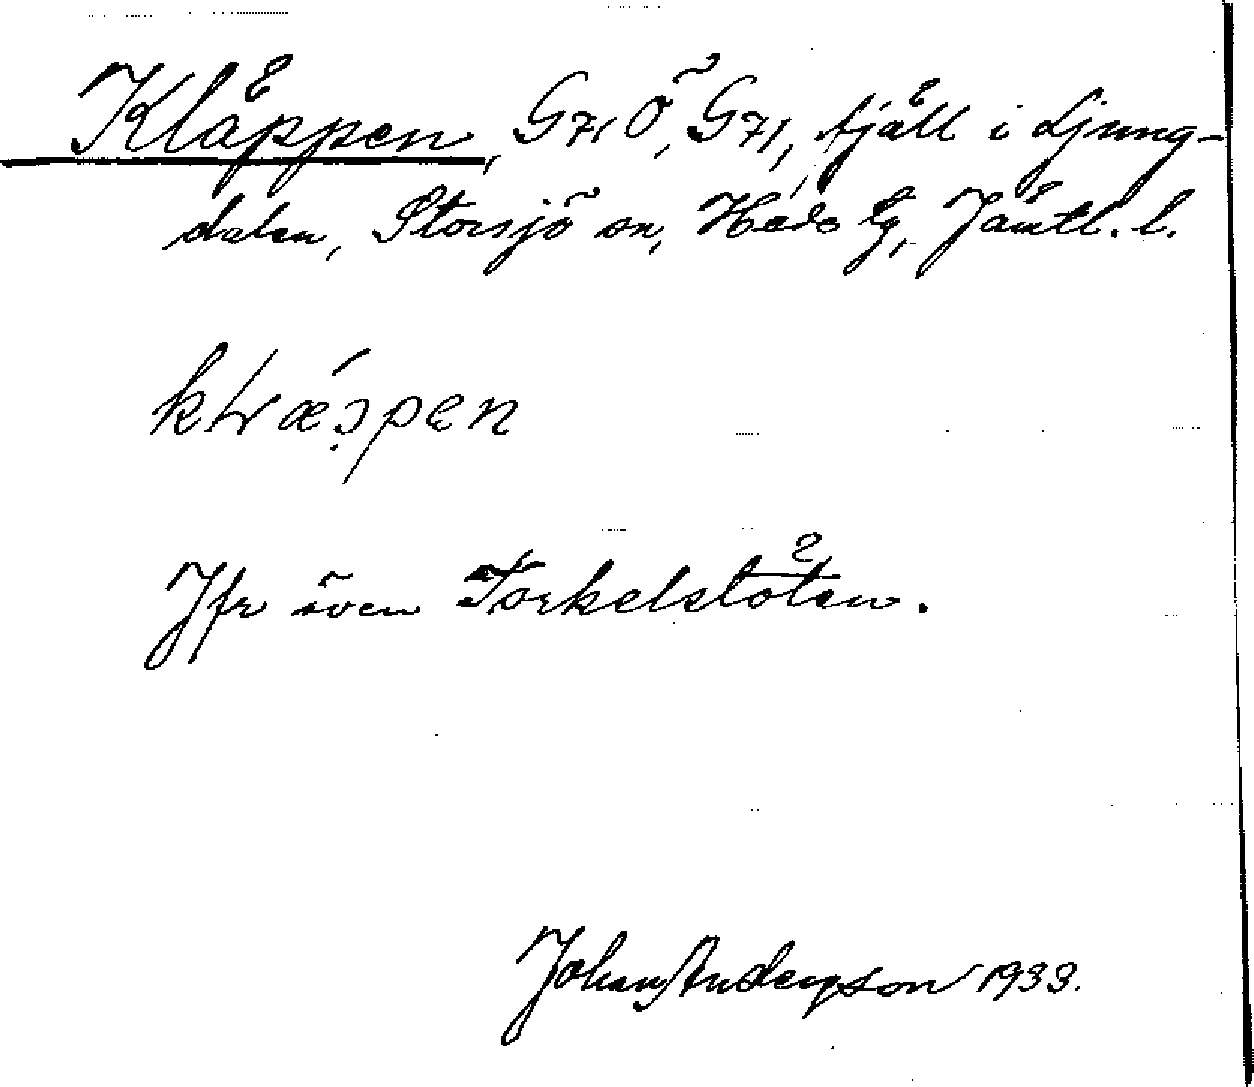 Kläppen, G71 Ö, G71, fjäll i Ljung-
dalen, Storsjö sn, Hede tg, Jämtl. l.
Jfr även Torkelstöten.
Johan Anderson 1933.